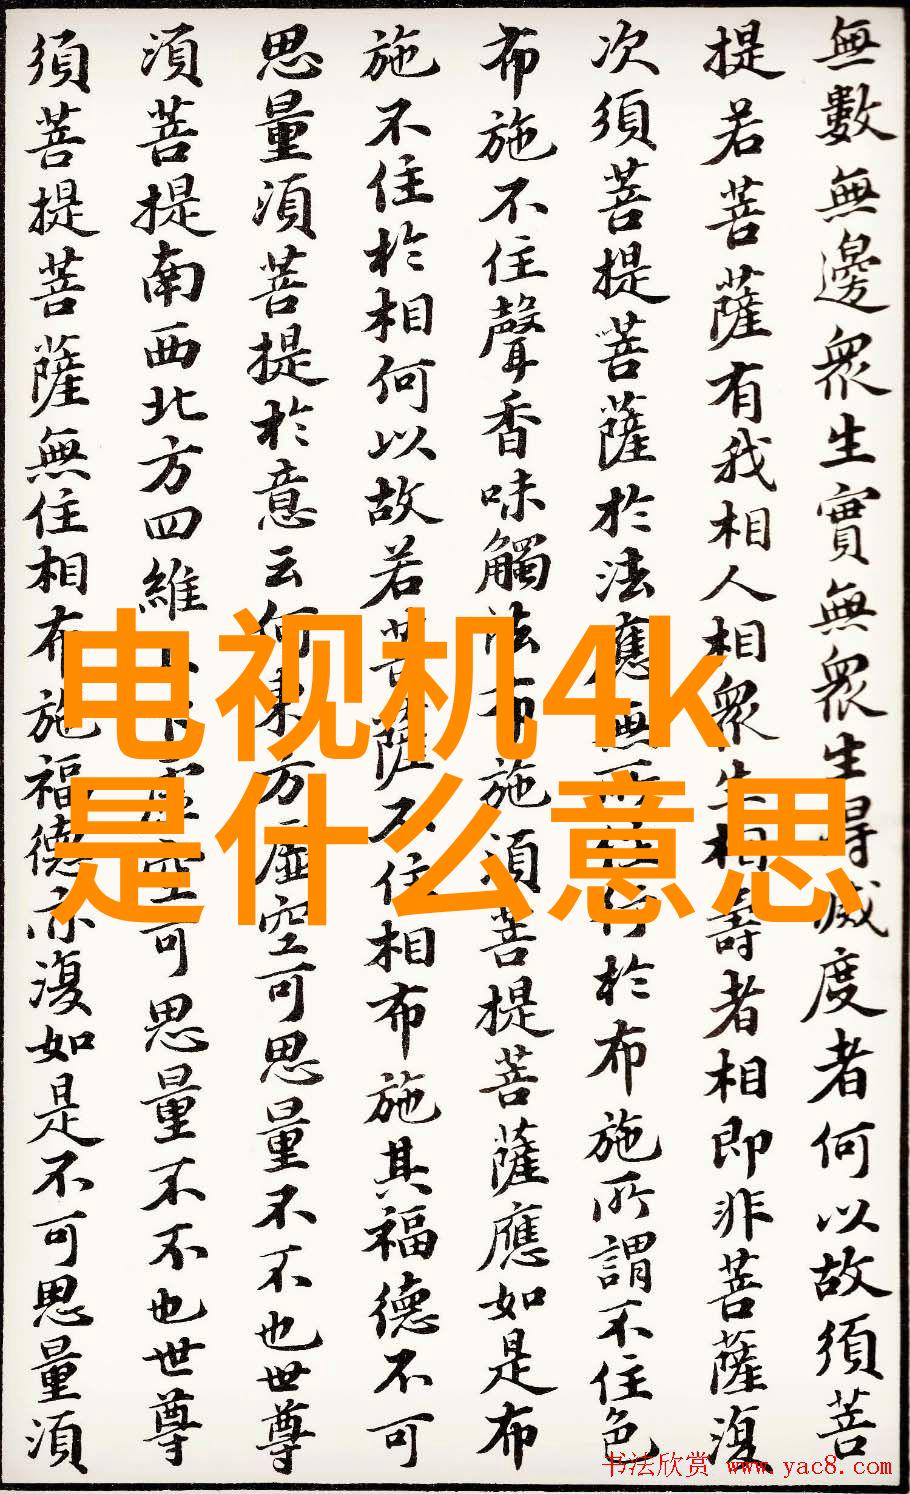 無數無邊眾生實無眾生得滅度者何以故須菩
提若菩薩有我相人相眾生相壽者相即非菩薩復
次須菩提菩薩於法應無所住行於布施所謂不住色
布施不住聲香味觸法布施須菩提菩薩應如是布
施不住於相何以故若菩薩不住相布施其福德不可
思量須菩提於意云何東方虛空可思量不不也世尊
須菩提南西北方四維上下虛空可思量不不也世尊
須菩提菩薩無住相布施福德亦復如是不可思量須
电视机4k
是什么意思
书法欣赏 www.yac8.com